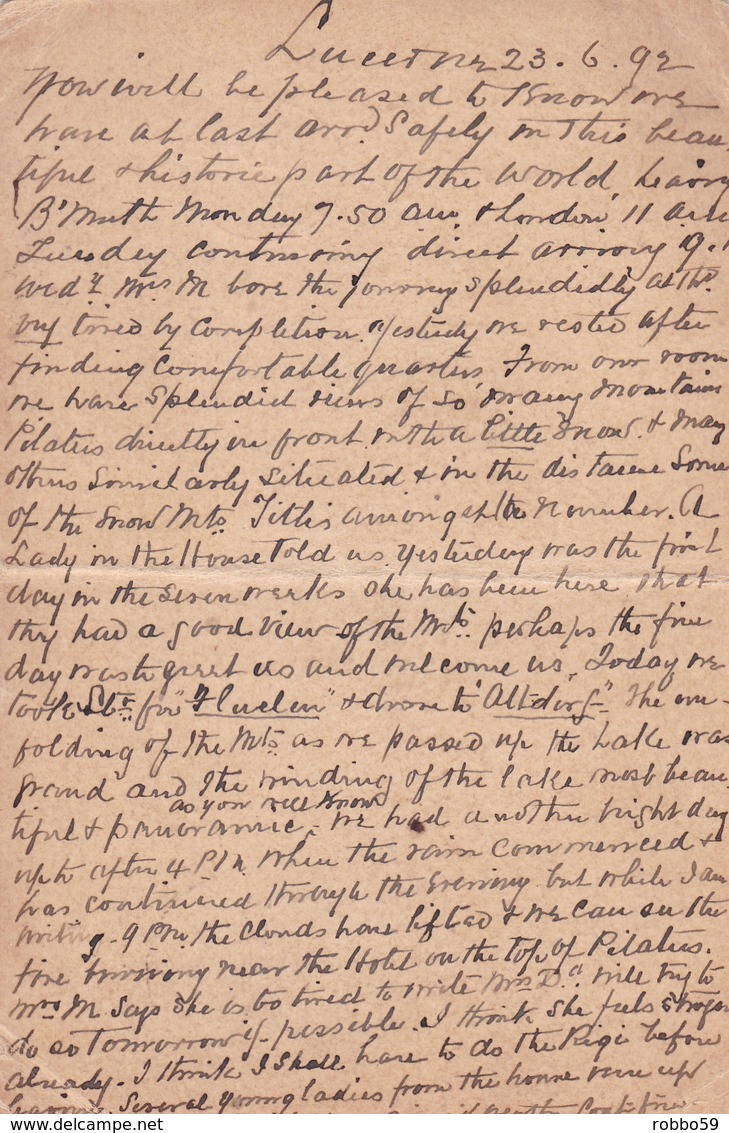 Lucerne 23.6.92
You will be pleased to know we
have at last arrd safely in this beau
tiful & historic part of the world, leaving
B'Muth Monday 7.50 am & London 11 am
Tuesday continuing direct arriving 9.
Wedy. Mrs M bore the journey splendidly altho.
very tired by completion. Yesterday we rested after
finding comfortable quarters. From our room
we have splendid views of so many mountains
Pilatus directly in front with a little snow. & many
others similarly situated & in the distance some
of the snow Mts. Titlis amongst the number. A
Lady in the House told us yesterday was the first
day in the seven weeks she has been here that
they had a good view of the Mts. perhaps the fine
day was to greet us and welcome us, Today we
took Str. for "Fluelen" & drove to "Altdorf". The un-
folding of the Mts. as we passed up the Lake was
grand and the winding of the lake most beau
as you will know
tiful & panoramic. We had another bright day
up to after 4 P.M. when the rain commenced &
has continued through the evening but while I am
writing - 9 P.M. the clouds have lifted & we can see the
fire burning near the Hotel on the top of Pilatus.
Mrs M says she is too tired to write Mrs D. will try to
do so Tomorrow if possible. I think she feels stronger
already. I think I shall have to do the Rigi before
leaving. Several young ladies from the house were up